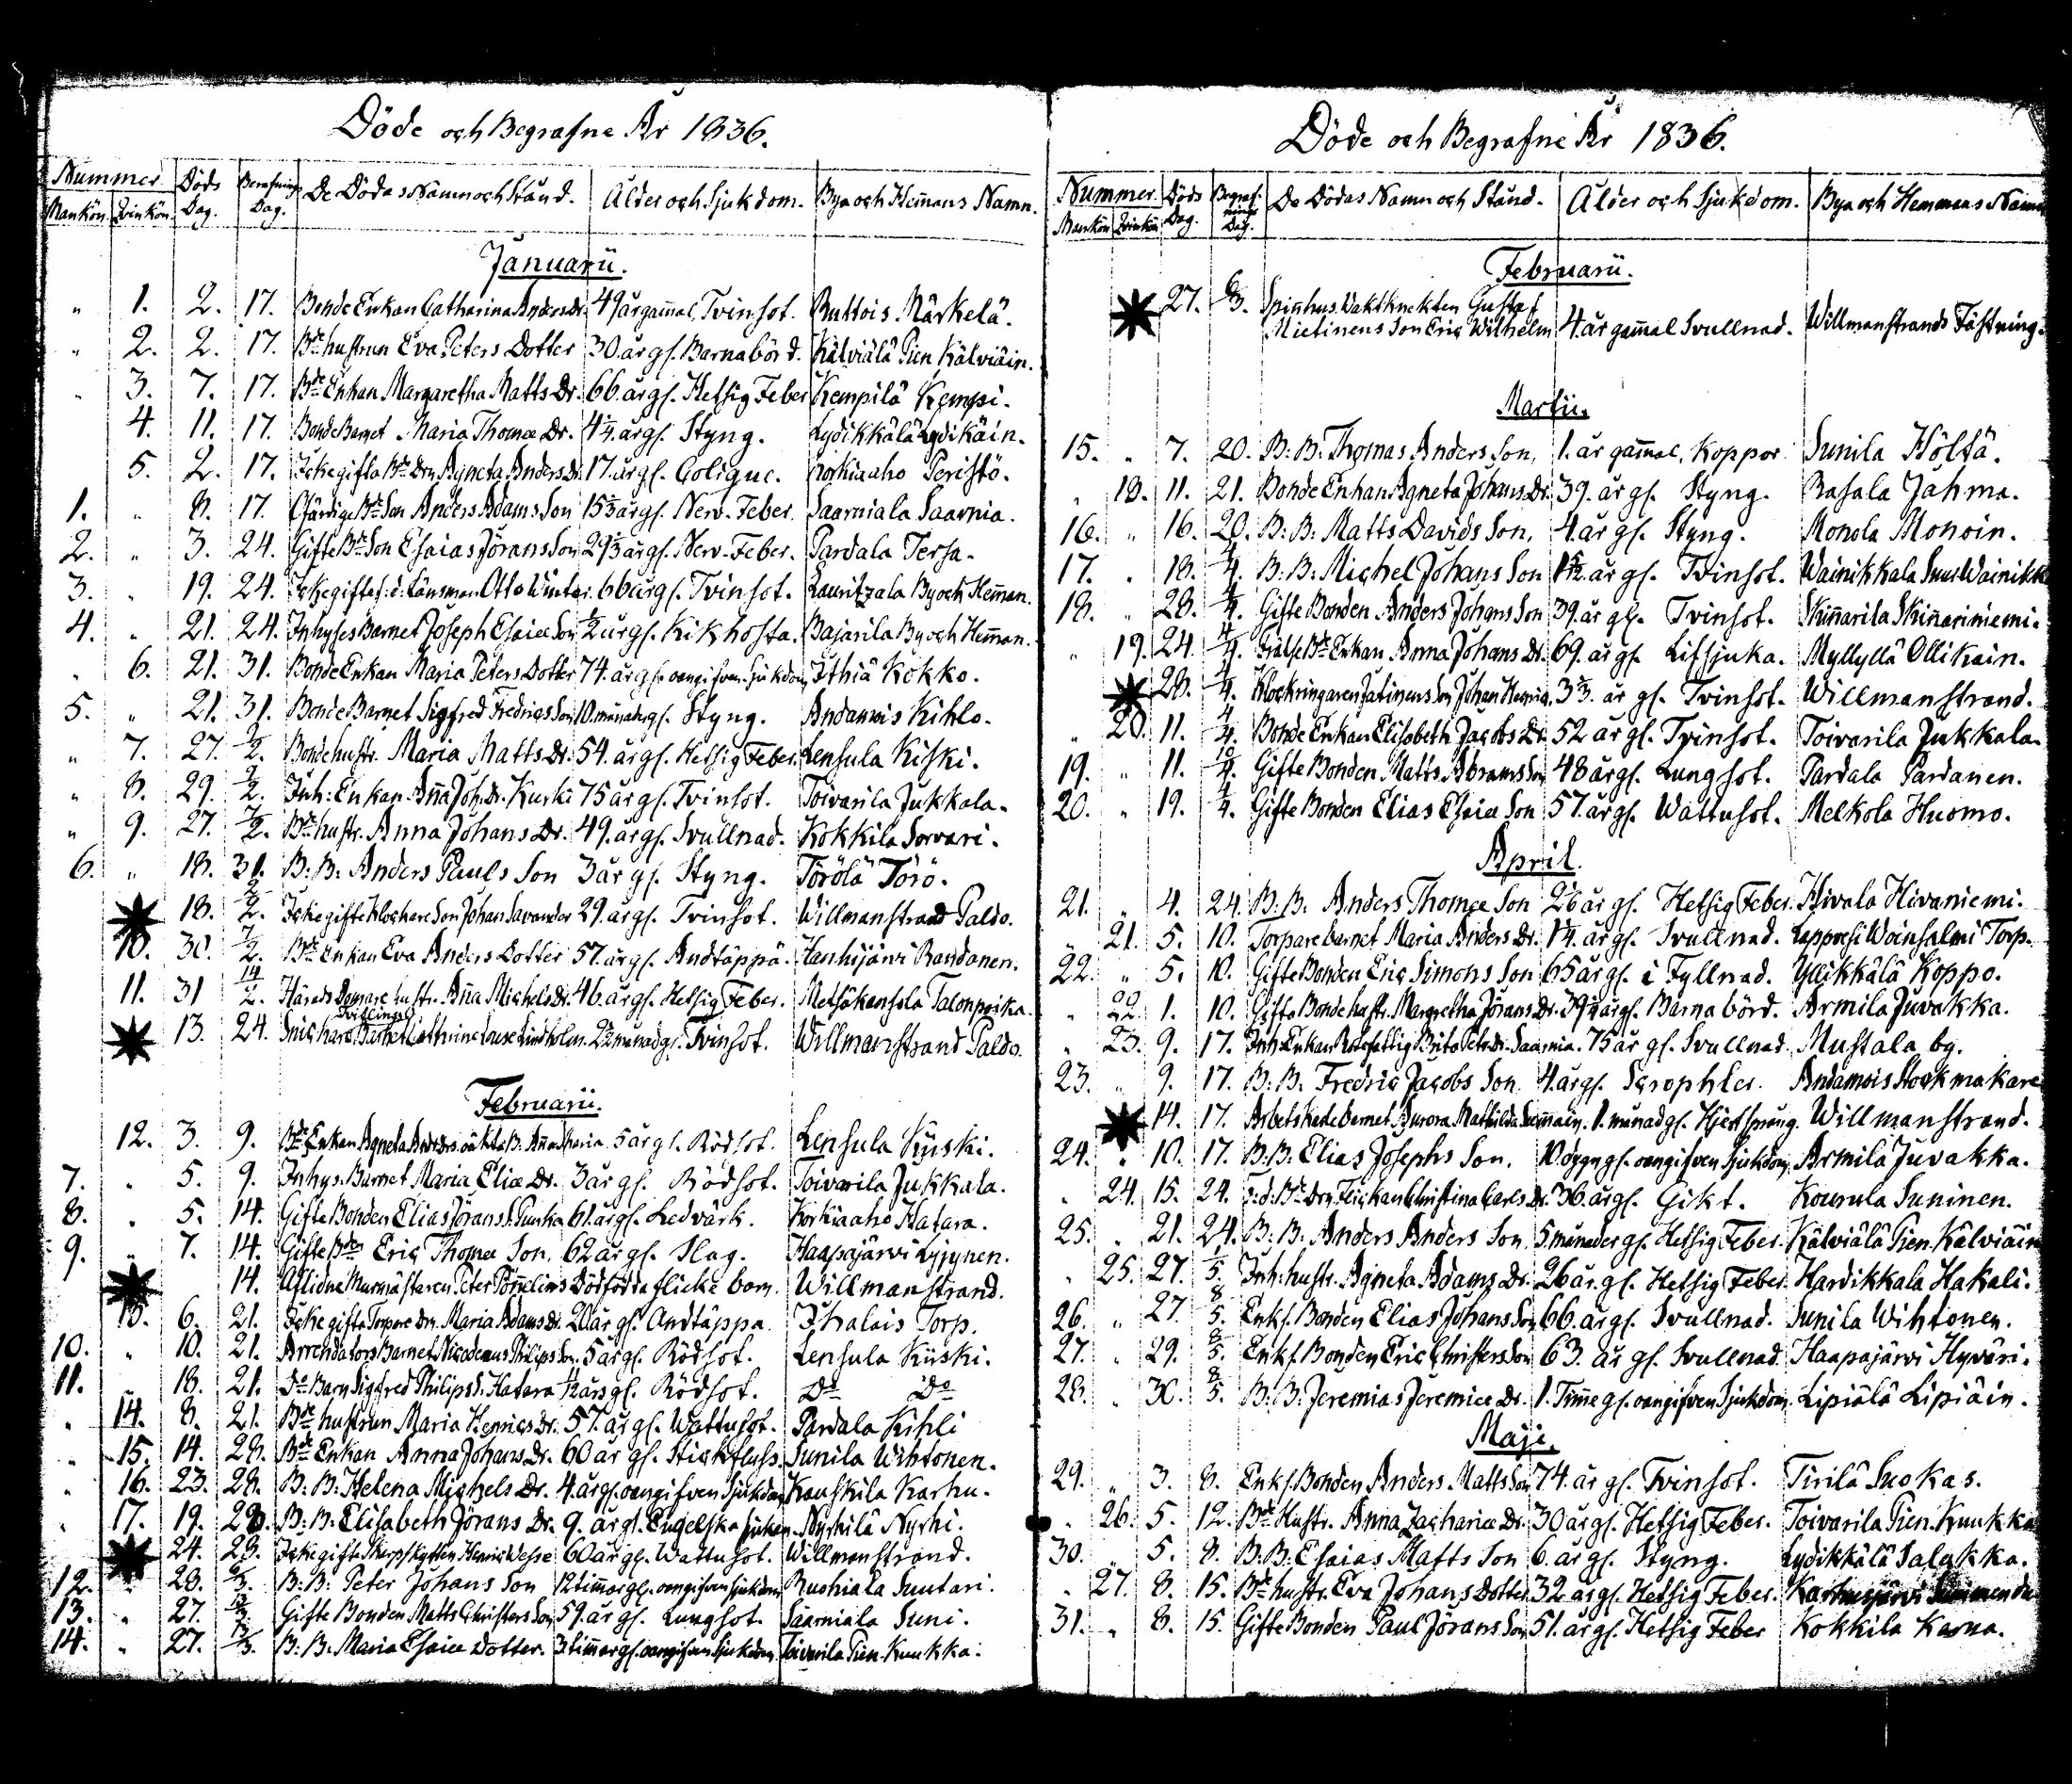 Döde och Begrafne År 1836.
Nummer Döds Dag. Begrafnings Dag. De Dödas Namn och Stånd. Ålder och Sjukdom. Bya och Hemans Namn.
Mankön. Qvinkön.
Januarii.
" 1. 2. 17. Bonde Enkan Catharina Anders Dr. 49 år gamal, Tvinsot. Ruttois Märkelä.
" 2. 2. 17. Bde hustrun Eva Peters Dotter 30 år gl. Barnabörd. Kälviälä Pien Kälviäin.
" 3. 7. 17. Bde Enkan Margaretha Matts Dr. 66 år gl. Hetsig Feber Kempilä Kempi.
4. 11. 17. Bonde Barnet Maria Thomæ Dr. 4 1/4 år gl. Styng. Lydikkälä Lydikäin.
5. 2. 17. Icke gifta Bde Drn Agneta Anders Dr. 17 år gl. Colique. Korkiaaho Peristö.
1. " 8. 17. Bde Son Anders Adams Son 15 år gl. Nerv. Feber. Saarniala Saarnia.
2. " 3. 24. Gifte Bde Son Esaias Jörans Son 29 år gl. Nerv. Feber. Pardala Tersa.
3. " 19. 24. Icke gifte f: d: Länsman Otto Winter. 66 år gl. Tvinsot. Lauritzala By och Heman.
4. " 21. 24. Inhyses Barnet Joseph Esaiæ Son 1/2 år gl. Kikhosta. Bajarila By och Heman.
" 6. 21. 31. Bonde Enkan Maria Peters Dotter 74 år gl. oangifven Sjukdom Ithiä Kokko.
5. " 21. 31. Bonde Barnet Sigfred Fredrics Son 10 månader gl. Styng. Andamois Kihlo.
" 7. 27. 7/2. Bonde hustr. Maria Matts Dr. 54 år gl. Hetsig Feber. Lensula Kiski.
" 8. 29. 7/2. Inh: Enkan Aña Joh. Dr. Kurki 75 år gl. Tvinsot. Toivarila Jukkala.
" 9. 27. 7/2. Bde hustr. Anna Johans Dr. 49 år gl. Svullnad. Kokkila Sorvari.
6. " 18. 31. B: B: Anders Pauls Son 3 år gl. Styng. Törölä Törö.
18. 2/2. Icke gifte Klockare Son Johan Savander 29 år gl. Tvinsot. Willmanstrand Paldo.
10. 30. 7/2. Bde Enkan Eva Anders Dotter 57 år gl. Andtäppa. Hanhijärvi Randanen.
11. 31 14/2. Härads Domare hustr. Aña Michels Dr. 46 år gl. Hetsig Feber. Metsäkansola Talonpoika.
Tvillings
13. 24. Snickare Barnet Cathrine Lovise Lindholm. 2 1/2 månad gl. Tvinsot. Willmanstrand Paldo.
Februarii.
12. 3. 9. 5 år gl. Rödsot. Lensula Kiiski.
7. " 5. 9. Inhys. Barnet Maria Eliæ Dr. 3 år gl. Rödsot. Toivarila Jukkala.
8. " 5. 14. Gifte Bonden Elias Jörans S. Punka 61 år gl. Ledvärk. Korkiaaho Hatara.
9. " 7. 14. Gifte Bden Eric Thomæ Son. 62 år gl. Slag. Haapajärvi Lyjynen.
14. Aflidne Murmästaren Peter Törnelins Dödfödda flicke barn. Willmanstrand.
13. 6. 21. Icke gifta Torpare Drn. Maria Adams Dr. 20 år gl. Andtäppa. Ihalais Torp.
10. " 10. 21. Arrendators Barnet Nicodemus Philips Son. 5 år gl. Rödsot. Lensula Kiiski.
11. 18. 21. Do Barn Sigfred Philips S. Hatara år gl. Rödsot. Do Do
" 14. 8. 21. Bde hustrun Maria Henrics Dr. 57 år gl. Wattusot. Pardala Kihli
" 15. 14. 28. Bde Enkan Anna Johans Dr. 60 år gl. Stickfluss. Sunila Wihtonen.
" 16. 23. 28. B: B: Helena Michels Dr. 4 år gl. oangifven Sjukdom Kauskila Karhu.
" 17. 19. 28. B: B: Elisabeth Jörans Dr. 9 år gl. Engelska Sjukan. Nyrhilä Nyrhi.
24. 28. Icke gifte Skarpskytten Henric Wesse 60 år gl. Wattusot. Willmanstrand.
12. " 28. 6/3. B: B: Peter Johans Son 12 timar gl. oangifven Sjukdom Ruohiala Suutari.
13. " 27. 13/3. Gifte Bonden Matts Christers Son 59 år gl. Lungsot. Saarniala Suni.
14. " 27. 13/3. B: B: Maria Esaiæ Dotter. 3 timar gl. oangifven Sjukdom Toivarila Pien. Kuukka.
Döde och Begrafne År 1836.
Nummer Döds Dag. Begrafnings Dag. De Dödas Namn och Stånd. Ålder och Sjukdom. Bya och Hemmans Namn
Mankön Qvinkön
Februarii.
27. 6/3. Spinhus Vaktknekten Gustaf
Mietinens Son Eric Wilhelm 4 år gamal Svullnad. Willmanstrands Fästning.
Martii.
15. " 7. 20. B: B: Thomas Anders Son, 1. år gamal, Koppor Sunila Höltä.
" 18. 11. 21. Bonde Enkan Agneta Johans Dr. 39. år gl. Styng. Rasala Jahma.
16. " 16. 20. B: B: Matts Davids Son, 4 år gl. Styng. Monola Monoin.
17. " 18. 4/4. B: B: Michel Johans Son 1 5/12 år gl. Tvinsot. Wainikkala Suur Wainikk
18. " 28. 4/4. Gifte Bonden Anders Johans Son 39. år gl. Tvinsot. Skinarila Skinariniemi.
" 19. 24. 4/4. Frälse Bde Enkan Anna Johans Dr. 69. år gl. Lifsjuka. Myllyllä Ollikain.
28. 4/4. Klockringaren Jatinens Son Johan Henric. 3 2/3 år gl. Tvinsot. Willmanstrand.
" 20. 11. 4/4. Bonde Enkan Elisabeth Jacobs Dr. 52 år gl. Tvinsot. Toivarila Jukkala.
19. " 11. 10/4. Gifte Bonden Matts Abrams Son 48 år gl. Lungsot. Pardala Pardanen.
20. " 19. 4/4. Gifte Bonden Elias Esaiæ Son 57. år gl. Wattusot. Melkola Huomo.
April.
21. " 4. 24. B: B: Anders Thomæ Son 26 år gl. Hetsig Feber. Hivala Hivaniemi.
" 21. 5. 10. Torpare barnet Maria Anders Dr. 1 1/4 år gl. Svullnad. Lappvesi Woinsalmi Torp.
22. " 5. 10. Gifte Bonden Eric Simons Son 65 år gl. i Fyllnad. Yllikkälä Koppo.
" 22. 1. 10. Gifte Bonde hustr. Margretha Jörans Dr. 39 1/2 år gl. Barnabörd. Armila Juvakka.
" 23. 9. 17. Inh: Enkan Rotefattig Brita Pets Dr. Saarnia. 75 år gl. Svullnad Mustala by.
23. " 9. 17. B: B: Fredric Jacobs Son. 4 år gl. Scrophler. Andamois Stockmakare
14. 17. Arbets Karls Barnet Aurora Mathilda 1. månad gl. Hjertsprång Willmanstrand.
24. " 10. 17. B: B: Elias Josephs Son. 10 dygn gl. oangifven Sjukdom. Armila Juvakka.
" 24. 15. 24. F: d: Bde Drn Christina Carls Dr. 36 år gl. Gikt. Kourula Suninen.
25. " 21. 24. B: B: Anders Anders Son 5 månader gl. Hetsig Feber. Kälviälä Pien. Kälviäin
" 25. 27. 1/5. Inh: hustr. Agneta Adams Dr. 26 år gl. Hetsig Feber. Hardikkala Hakali.
26. " 27. 8/5. Enkl. Bonden Elias Johans Son 66. år gl. Svullnad. Sunila Wihtonen.
27. " 29. 8/5. Enkl. Bonden Eric Christers Son 63. år gl. Svullnad. Haapajärvi Hyväri.
28. " 30. 8/5. B: B: Jeremias Jeremiæ Dr. 1. Timme gl. oangifven Sjukdom. Lipiälä Lipiäin.
Maji.
29. " 3. 8. Enkl. Bonden Anders Matts Son 74. år gl. Tvinsot. Tirilä Suokas.
" 26. 5. 12. Bde Hustr. Anna Zachariæ Dr. 30 år gl. Hetsig Feber. Toivarila Pien. Kuukka
30. " 5. 8. B: B: Esaias Matts Son 6. år gl. Styng. Lydikkälä Salukka.
" 27. 8. 15. Bde hustr. Eva Johans Dotter 32 år gl. Hetsig Feber.
31. " 8. 15. Gifte Bonden Paul Jörans Son 51. år gl. Hetsig Feber Kokkila Karna.